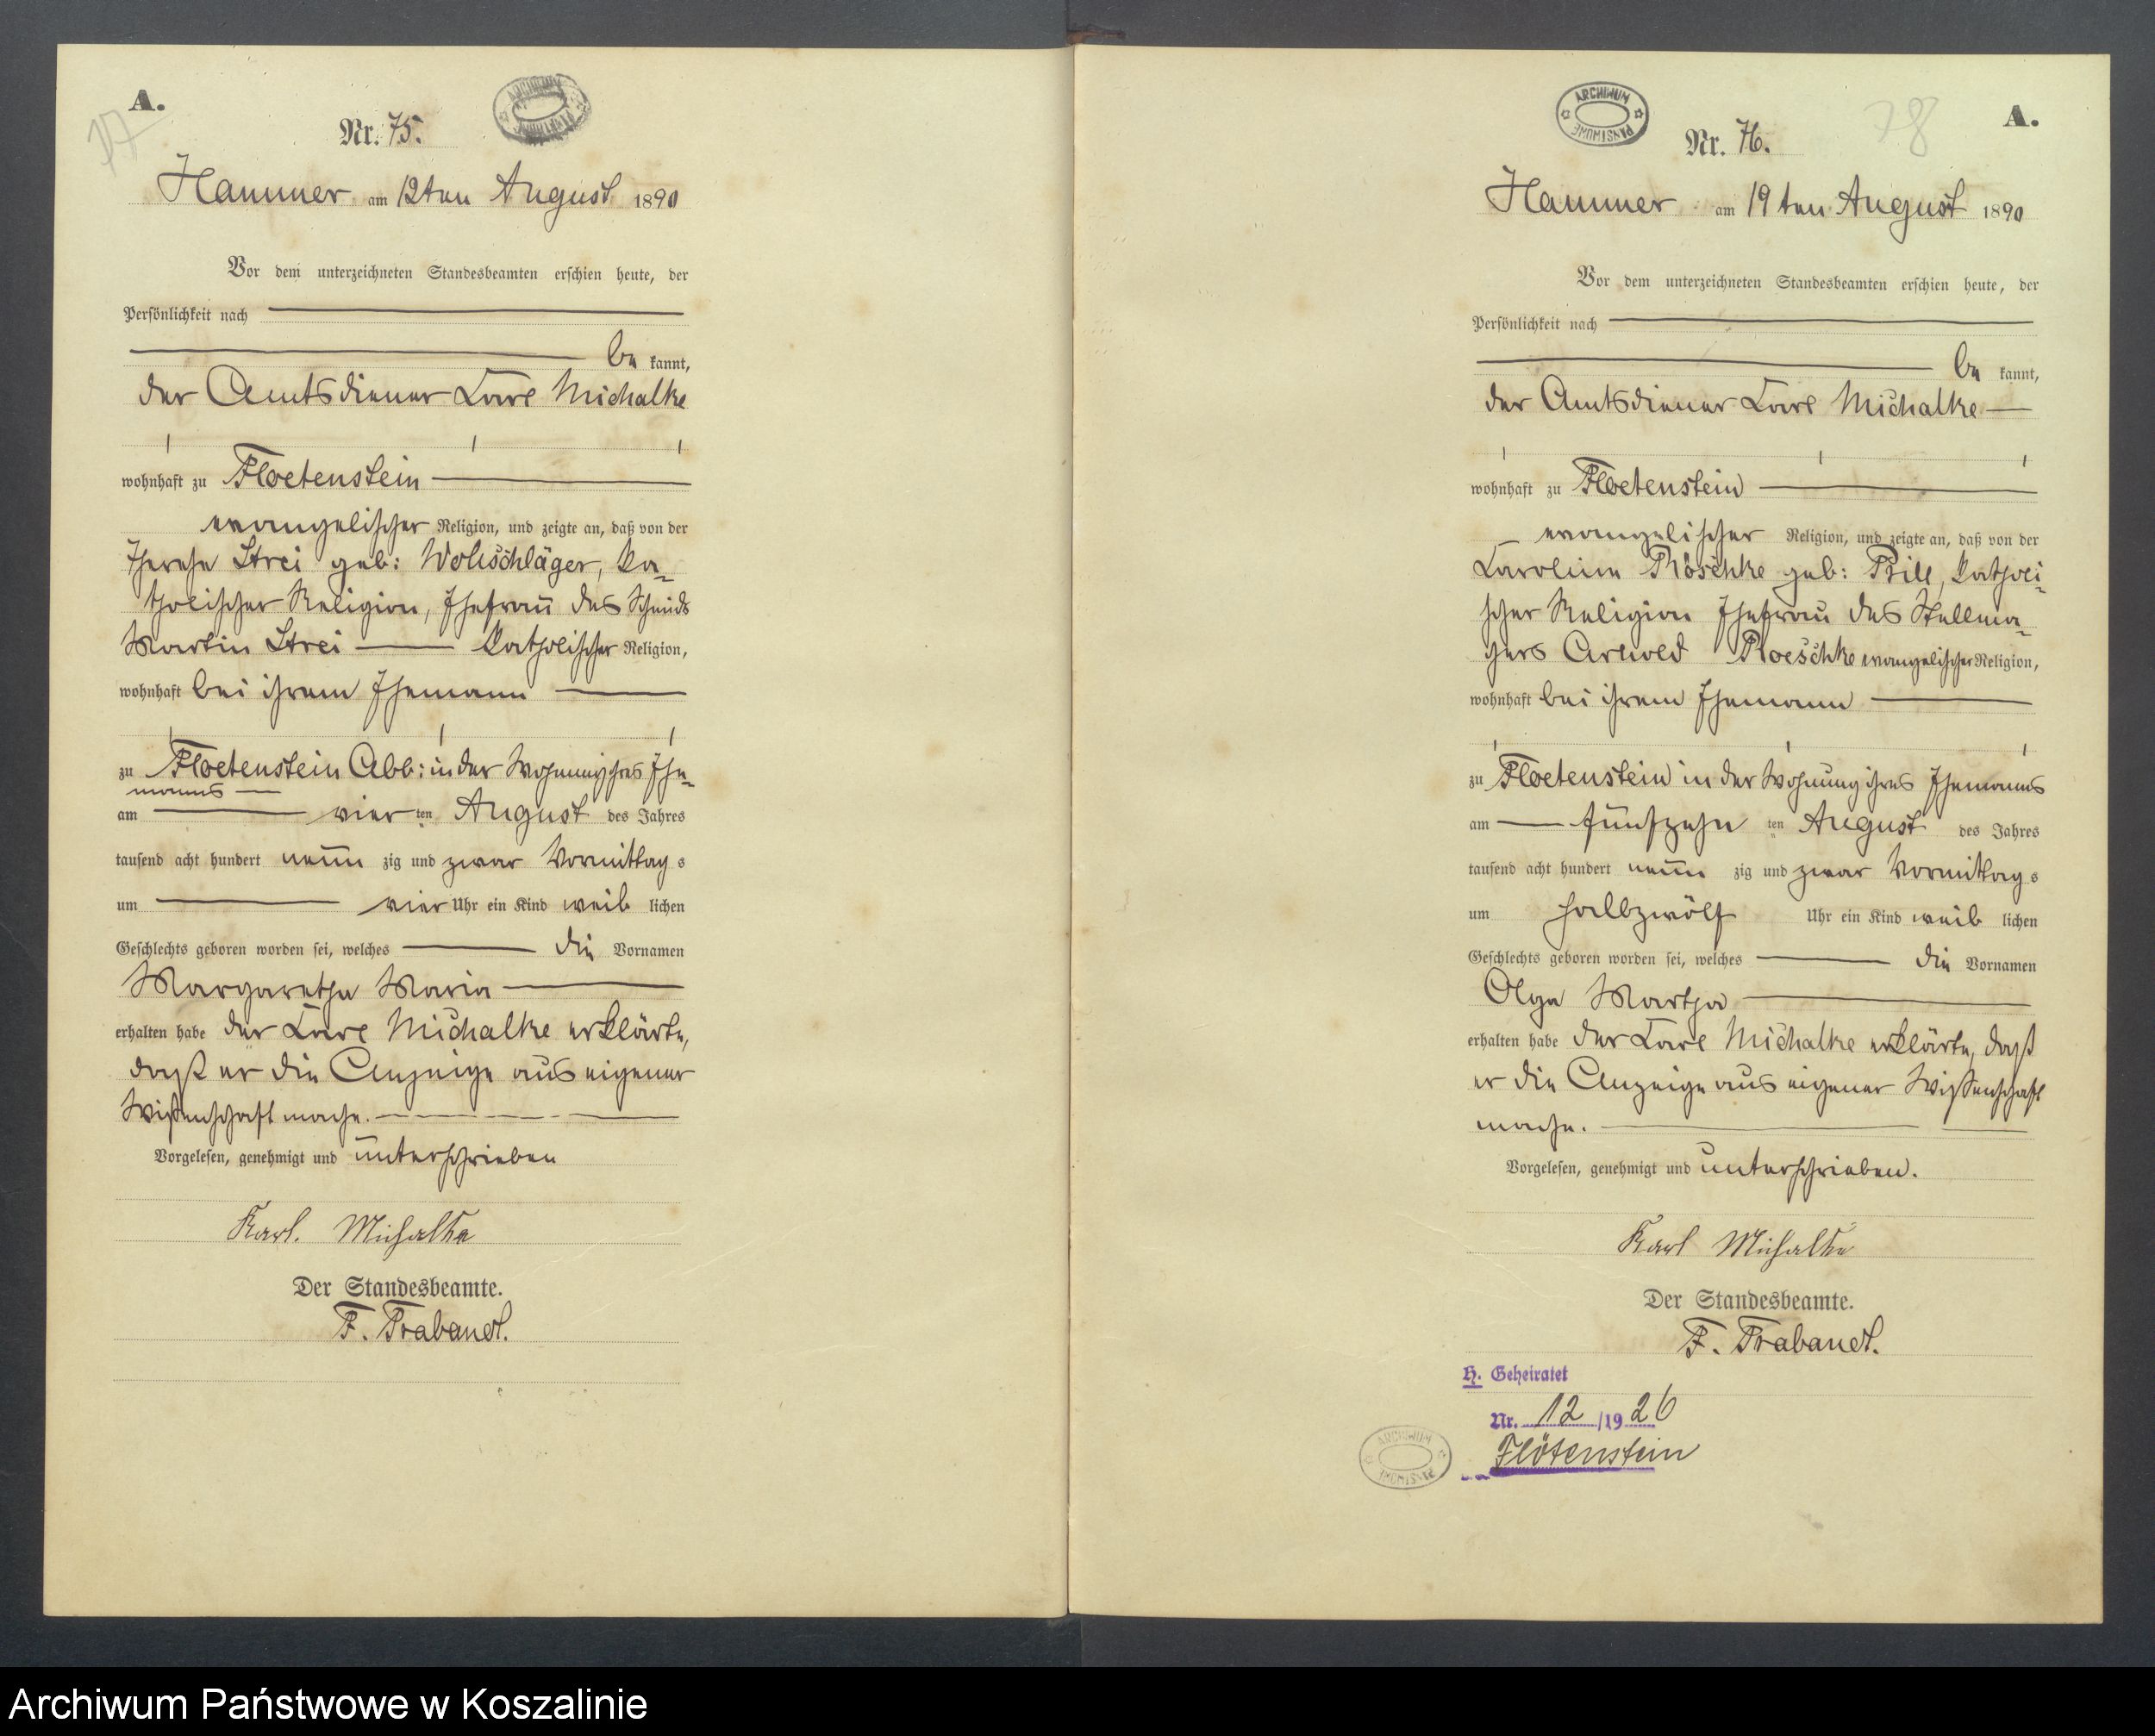 A.
77
Nr. 75.
ARCHIWUM PAŃSTWOWE
Hammer am 12ten August 1890
Vor dem unterzeichneten Standesbeamten erschien heute, der
Persönlichkeit nach
be kannt,
der Amtsdiener Carl Michalke
wohnhaft zu Floetenstein
evangelischer Religion, und zeigte an, daß von der
Therese Strei geb: Wollschläger, ka-
tholischer Religion, Ehefrau des Schmieds
Martin Strei katholischer Religion,
wohnhaft bei ihrem Ehemann
zu Floetenstein Abb: in der Wohnung ihres Ehe-
manns
am vier ten August des Jahres
tausend acht hundert neun zig und zwar Vormittag s
um vier Uhr ein Kind weib lichen
Geschlechts geboren worden sei, welches die Vornamen
Margarethe Maria
erhalten habe der Carl Michalke erklärte,
daß er die Anzeige aus eigener
Wißenschaft mache.
Vorgelesen, genehmigt und unterschrieben
Karl. Michalke
Der Standesbeamte.
F. Trabandt.
A.
78
ARCHIWUM PAŃSTWOWE
Nr. 76.
Hammer am 19ten August 1890
Vor dem unterzeichneten Standesbeamten erschien heute, der
Persönlichkeit nach
be kannt,
der Amtsdiener Carl Michalke
wohnhaft zu Floetenstein
evangelischer Religion, und zeigte an, daß von der
Caroline Röschke geb: Prill, katholi-
scher Religion Ehefrau des Stellma-
chers Arnold Roeschke evangelischer Religion,
wohnhaft bei ihrem Ehemann
zu Floetenstein in der Wohnung ihres Ehemanns
am fünfzehn ten August des Jahres
tausend acht hundert neun zig und zwar Vormittag s
um halbzwölf Uhr ein Kind weib lichen
Geschlechts geboren worden sei, welches die Vornamen
Olga Martha
erhalten habe der Carl Michalke erklärte, daß
er die Anzeige aus eigener Wißenschaft
mache.
Vorgelesen, genehmigt und unterschrieben.
Karl Michalke
Der Standesbeamte.
F. Trabandt.
H. Geheiratet
Nr. 12 /19 26
Flötenstein
ARCHIWUM PAŃSTWOWE
Archiwum Państwowe w Koszalinie